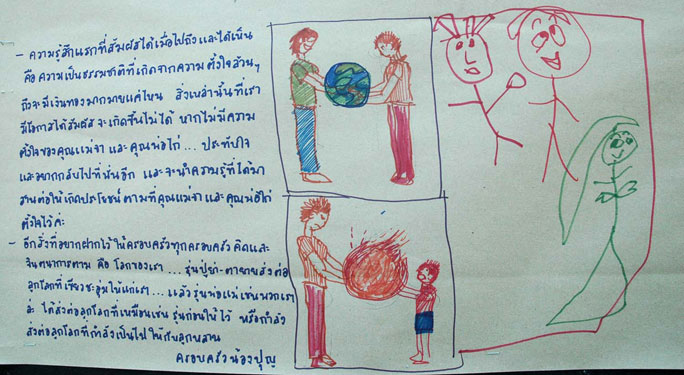 - ความรู้สึกแรกที่สัมผัสได้เมื่อไปถึงและได้เห็น
คือ ความเป็นธรรมชาติที่เกิดจากความตั้งใจล้วนๆ
ถึงจะมีเงินทองมากมายแค่ไหน สิ่งเหล่านั้นที่เรา
มีโอกาสได้สัมผัส จะเกิดขึ้นไม่ได้ หากไม่มีความ
ตั้งใจของคุณแม่จา และ คุณพ่อไก่ ... ประทับใจ
และอยากกลับไปที่นั่นอีก และจะนำความรู้ที่ได้มา
สานต่อให้เกิดประโยชน์ตามที่คุณแม่จา และ คุณพ่อไก่
ตั้งใจไว้ค่ะ
- อีกสิ่งที่อยากฝากไว้ให้ครอบครัวทุกครอบครัว คิดและ
จินตนาการตาม คือ โลกของเรา ... รุ่นปู่ย่า-ตายายส่งต่อ
ลูกโลกที่เขียวชะอุ่มให้แก่เรา ... แล้วรุ่นพ่อแม่เช่นพวกเรา
ล่ะ ได้ส่งต่อลูกโลกที่เหมือนเช่น รุ่นก่อนให้ไว้ หรือกำลัง
ส่งต่อลูกโลกที่กำลังเป็นไป ให้กับลูกหลาน
ครอบครัวน้องปุญ